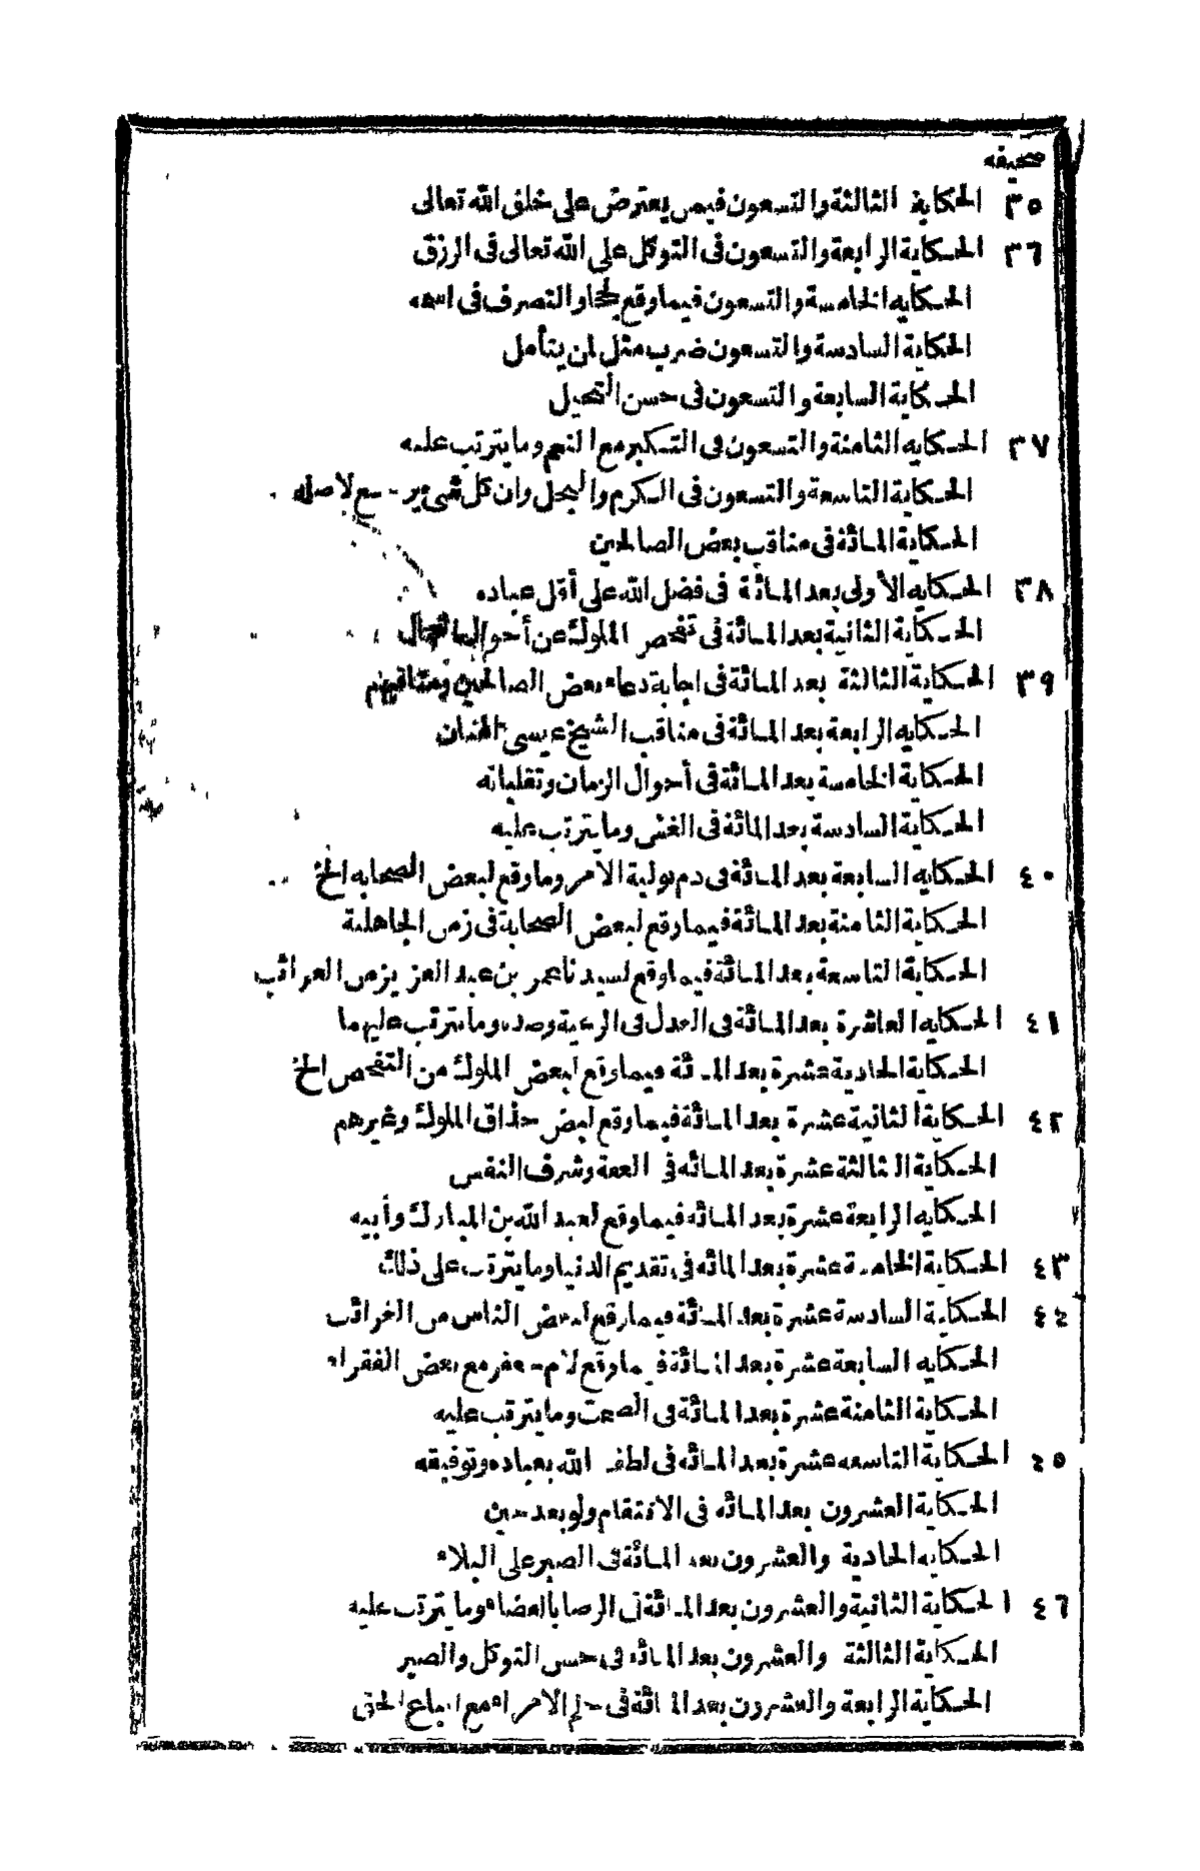 صحيفه
٣٥ الحكاية الثالثة والتسعون فيمن يعترض على خلق الله تعالى
٣٦ الحكاية الرابعة والتسعون فى التوكل على الله تعالى فى الرزق
الحكاية الخامسة والتسعون فيما وقع لجحا والتصرف فى اسمه
الحكاية السادسة والتسعون ضرب مثل لمن يتأمل
الحكاية السابعة والتسعون فى حسن التحيل
٣٧ الحكاية الثامنة والتسعون فى التكبر مع النعم وما يترتب عليه
الحكاية التاسعة والتسعون فى الكرم والبخل وان كل شىء يرجع لاصله
الحكاية المائة فى مناقب بعض الصالحين
٣٨ الحكاية الأولى بعد المائة فى فضل الله على أقل عباده
الحكاية الثانية بعد المائة فى تفحص الملوك عن أحوال
٣٩ الحكاية الثالثة بعد المائة فى اجابة دعاء بعض الصالحين ومناقبهم
الحكاية الرابعة بعد المائة فى مناقب الشيخ عيسى
الحكاية الخامسة بعد المائة فى أحوال الزمان وتقلباته
الحكاية السادسة بعد المائة فى الغش وما يترتب عليه
٤٠ الحكاية السابعة بعد المائة فى ذم تولية الأمر وما وقع لبعض الصحابة الخ
الحكاية الثامنة بعد المائة فيما وقع لبعض الصحابة فى زمن الجاهلية
الحكاية التاسعة بعد المائة فيما وقع لسيدنا عمر بن عبد العزيز من الغرائب
٤١ الحكاية العاشرة بعد المائة فى العدل فى الرعية وضده وما يترتب عليهما
الحكاية الحادية عشرة بعد المائة فيما وقع لبعض الملوك من التفحص الخ
٤٢ الحكاية الثانية عشرة بعد المائة فيما وقع لبعض حذاق الملوك وغيرهم
الحكاية الثالثة عشرة بعد المائة فى العفة وشرف النفس
الحكاية الرابعة عشرة بعد المائة فيما وقع لعبد الله بن المبارك وأبيه
٤٣ الحكاية الخامسة عشرة بعد المائة فى تقديم الدنيا وما يترتب على ذلك
٤٤ الحكاية السادسة عشرة بعد المائة فيما وقع لبعض الناس من الغرائب
الحكاية السابعة عشرة بعد المائة فيما وقع لام جعفر مع بعض الفقراء
الحكاية الثامنة عشرة بعد المائة فى الصمت وما يترتب عليه
٤٥ الحكاية التاسعة عشرة بعد المائة فى لطف الله بعباده وتوفيقه
الحكاية العشرون بعد المائة فى الانتقام ولو بعد حين
الحكاية الحادية والعشرون بعد المائة فى الصبر على البلاء
٤٦ الحكاية الثانية والعشرون بعد المائة فى الرضا بالقضاء وما يترتب عليه
الحكاية الثالثة والعشرون بعد المائة فى حسن التوكل والصبر
الحكاية الرابعة والعشرون بعد المائة فى حلم الأمراء مع اتباع الحق